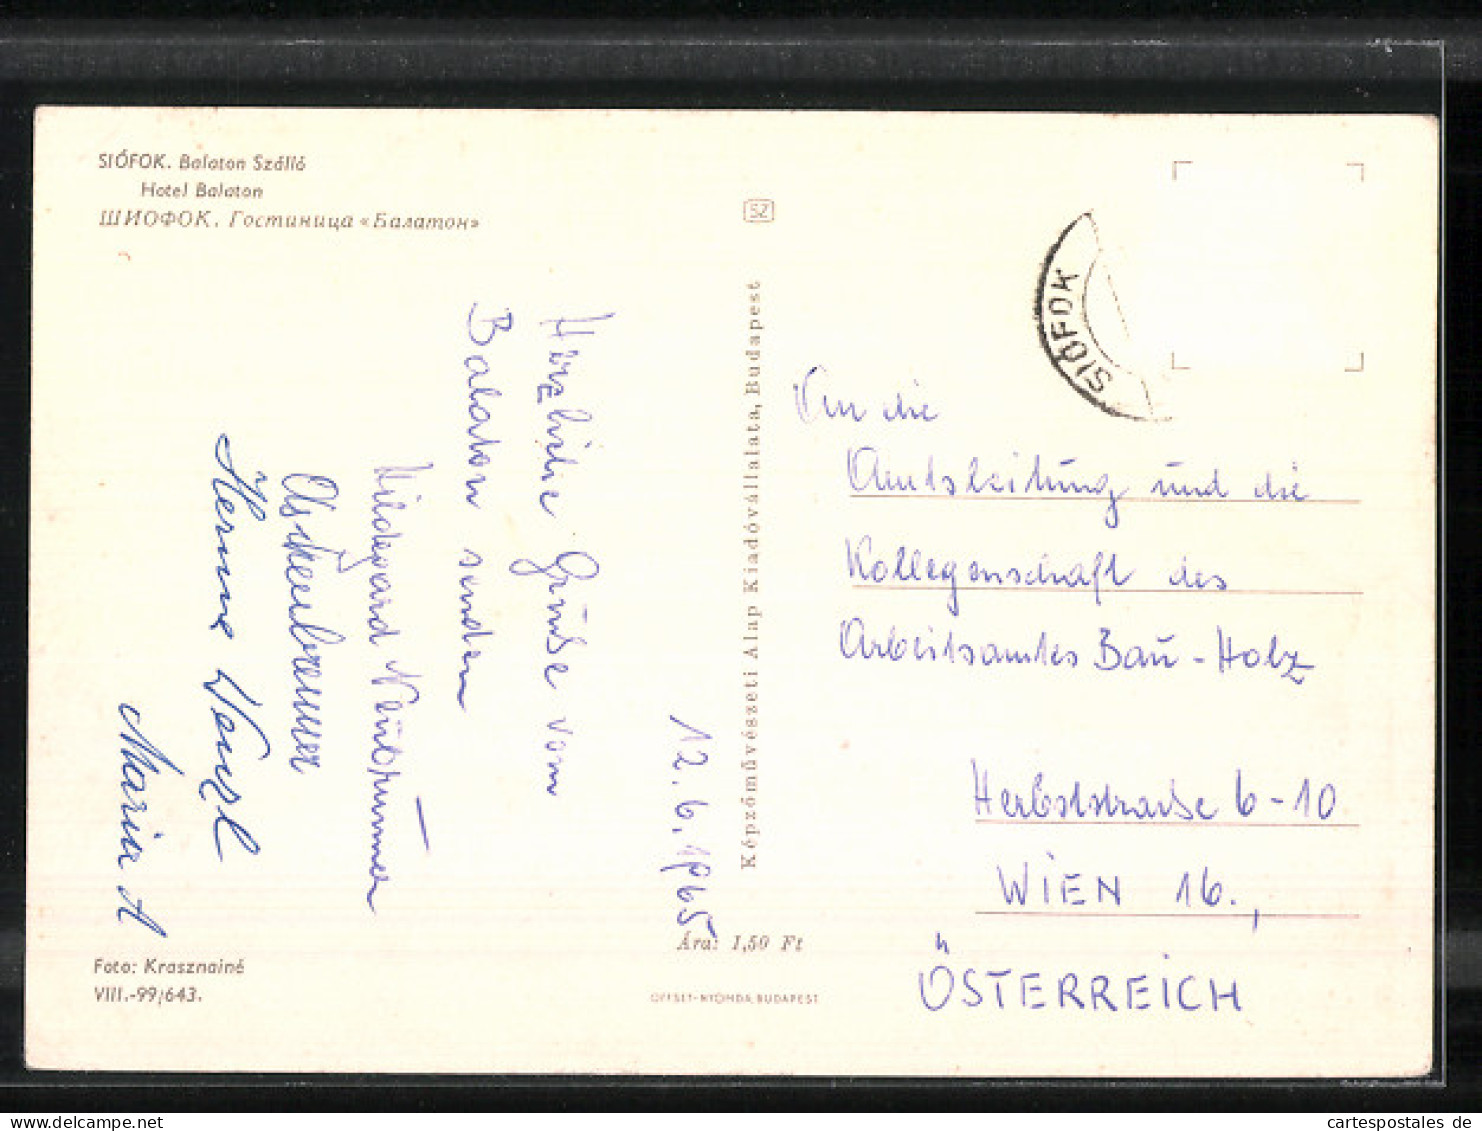 SIÓFOK. Balaton Szálló
Hotel Balaton
ШИОФОК. Гостиница «Балатон»
SZ
SIÓFOK
Herzliche Grüße vom
Balaton senden
Hildegard
Maria A
12.6.1965
Képzőművészeti Alap Kiadóvállalata, Budapest
An die
Amtsleitung und die
Kollegenschaft des
Arbeitsamtes Bau-Holz
Herbststraße 6-10
WIEN 16.,
ÖSTERREICH
Ára: 1,50 Ft
Foto: Krasznainé
VIII.-99/643.
OFFSET-NYOMDA, BUDAPEST
cartespostales.de